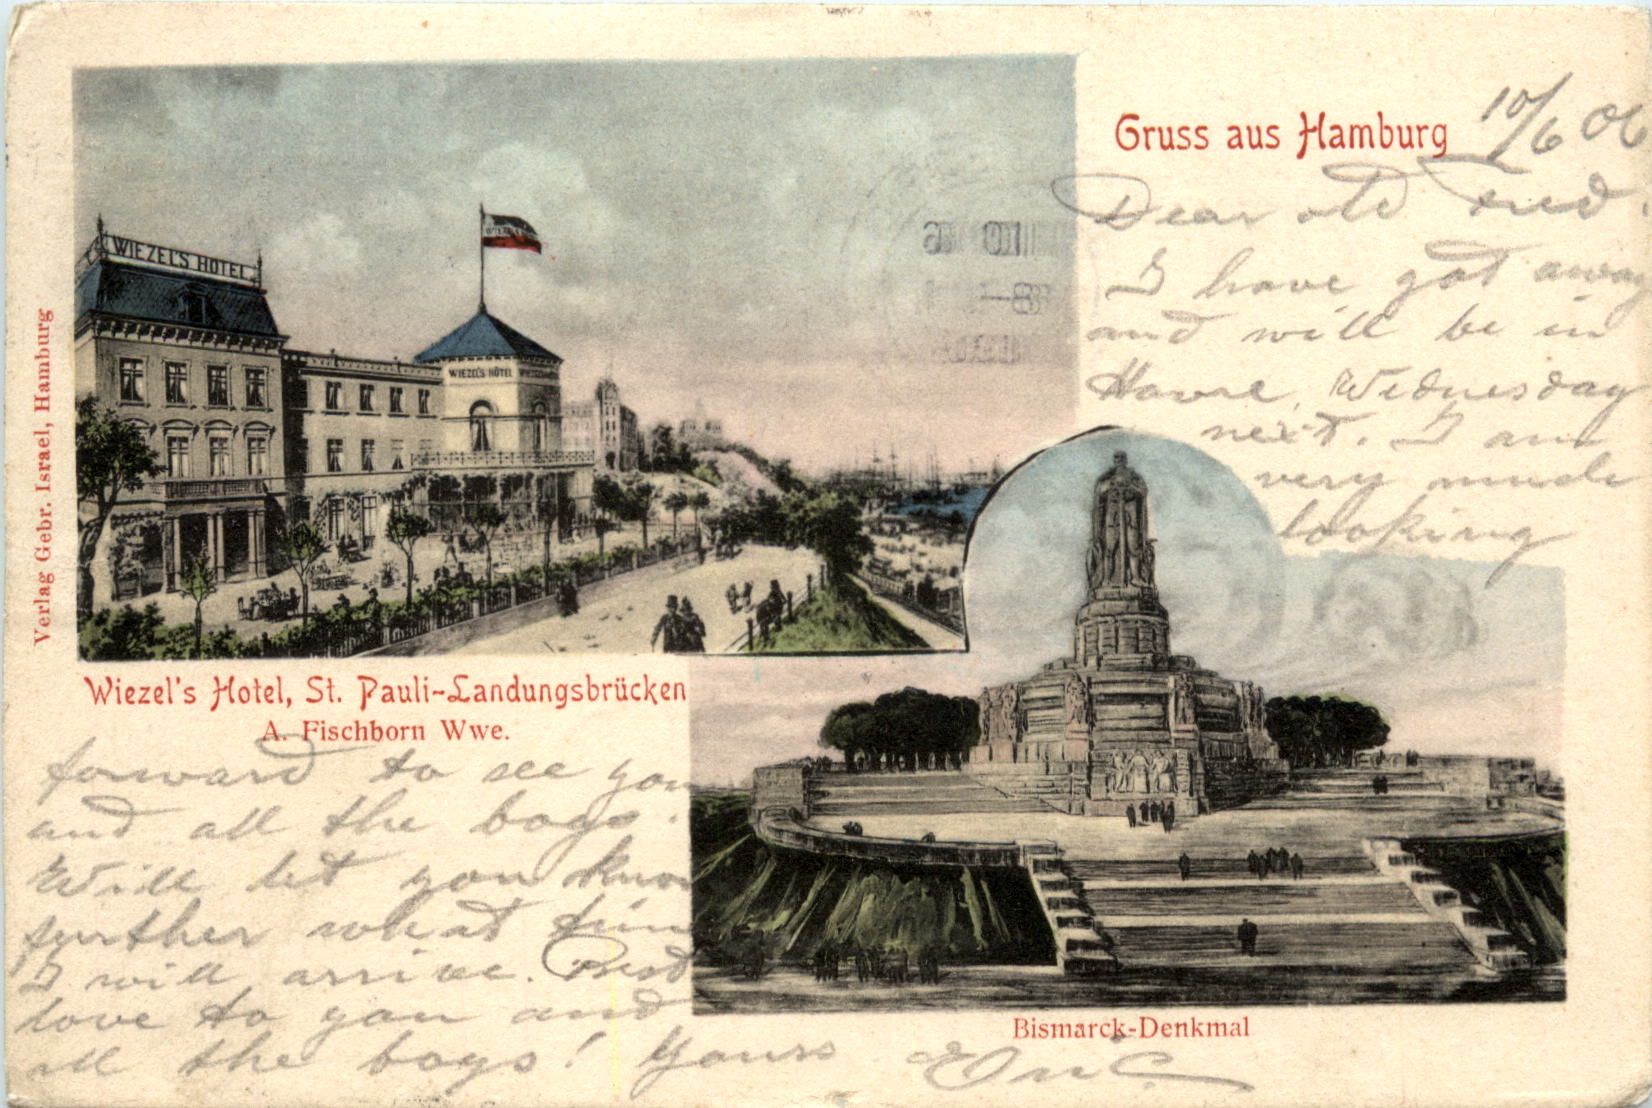 Gruss aus Hamburg
10/6 06
Dear old Fred
I have got away
and will be in
Havre, Wednesday
next. I am
very much
looking
WIEZEL'S HOTEL
WIEZEL'S HÔTEL
Verlag Gebr. Israel, Hamburg
Wiezel's Hotel, St. Pauli-Landungsbrücken
A. Fischborn Wwe.
forward to see you
and all the boys.
Will let you know
further what time
I will arrive. Best
love to you and
all the boys! Yours
Bismarck-Denkmal